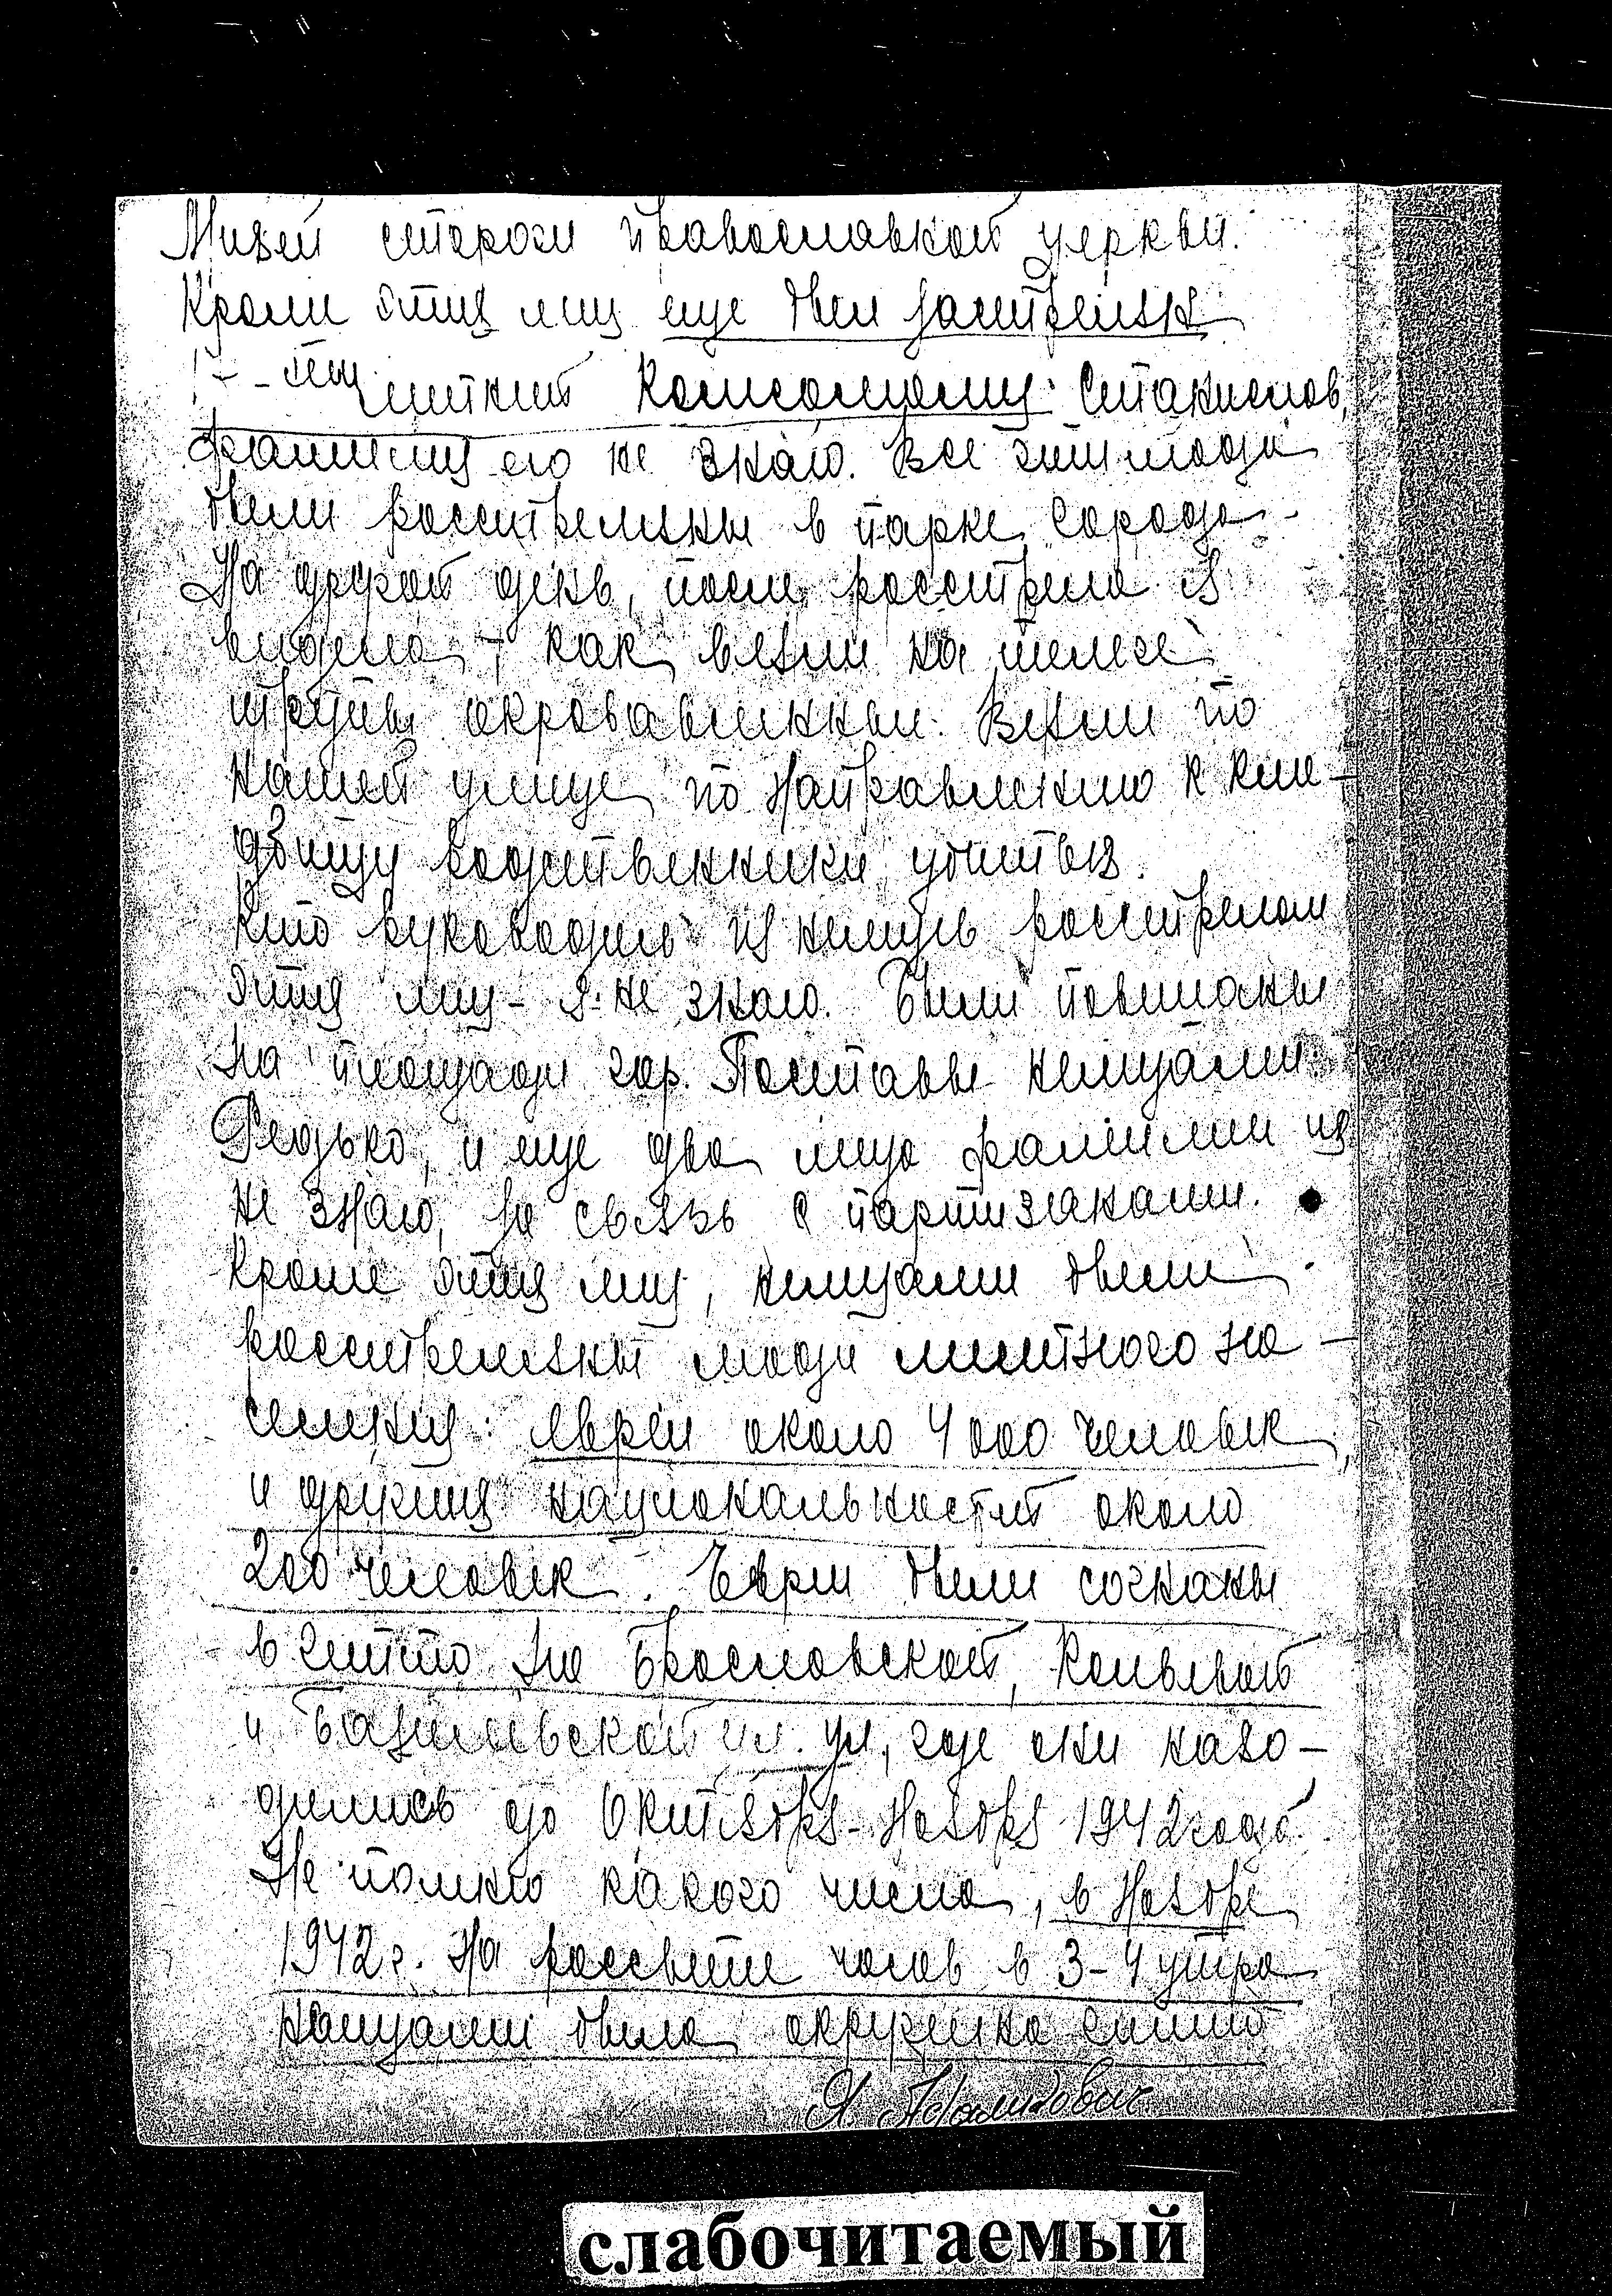 Мизей сторож православной церкви.
Кроме этих лиц еще был застрелян
летний комсомолец: Станислав,
фамилию его не знаю. Все эти люди
были расстреляны в парке города.
На другой день, после расстрела я
видела, как везли на телеге
трупы окровавленные. Везли по
нашей улице по направлению к кла-
дбищу родственники убитых.
Кто руководил из немцев расстрелом
этих лиц - я не знаю. Были повешаны
на площади гор. Поставы немцами:
Редько, и еще два лица фамилии их
не знаю, за связь с партизанами.
Кроме этих лиц, немцами были
расстреляны люди местного на-
селения: евреи около 4000 человек,
и других национальностей около
200 человек. Евреи были согнаны
в гетто на Браславской,
и Базилевской ул. ул, где они нахо-
дились до Октября-Ноября 1942 года.
Не помню какого числа, в Ноябре
1942 г. на рассвете часов в 3-4 утра
немцами была окружена
Я
слабочитаемый